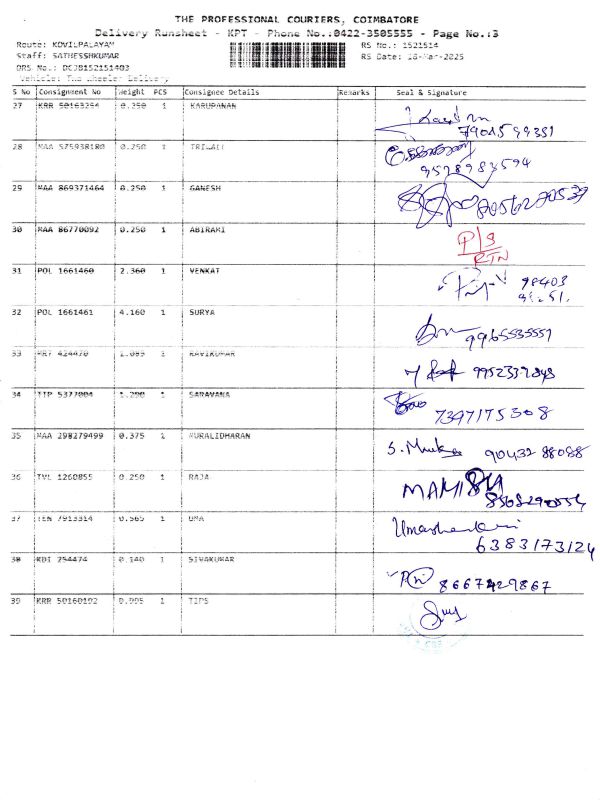 THE PROFESSIONAL COURIERS, COIMBATORE
Delivery Runsheet - KPT - Phone No.:0422-3505555 - Page No.:3
Route: KOVILPALAYAM
RS No.: 1521514
Staff: SATHESSHKUMAR
RS Date: 18-Mar-2025
DRS No.: DCJB152151403
Vehicle: Two Wheeler Delivery
S No Consignment No Weight PCS Consignee Details Remarks Seal & Signature
27 KRR 50163254 0.250 1 KARUPANAN
28 MAA 575938180 0.250 1
9578983594
29 MAA 869371464 0.250 1 GANESH
30 MAA 86770092 0.250 1 ABIRAMI P/S
RTN
31 POL 1661460 2.360 1 VENKAT 98403
32 POL 1661461 4.160 1 SURYA
9965535551
33 424470 1.089 1 RAVIKUMAR
34 TTP 5377004 1.200 1 SARAVANA
7397175308
35 MAA 298279499 0.375 1 MURALIDHARAN 90432 88088
36 TVL 1260855 0.250 1 RAJA
37 TEN 7913314 0.565 1 UMA
6383173124
38 KDI 254474 0.140 1 SIVAKUMAR
8667429867
39 KRR 50160192 0.995 1 TIPS